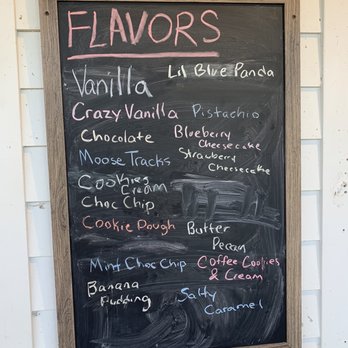 FLAVORS
Vanilla
Lil Blue Panda
Crazy Vanilla
Pistachio
Chocolate
Blueberry
Cheesecake
Moose Tracks
Strawberry
Cheesecake
Cookies
Cream
Choc Chip
Cookie Dough
Butter
Pecan
Mint Choc Chip
Coffee Cookies
& Cream
Banana
Pudding
Salty
Caramel